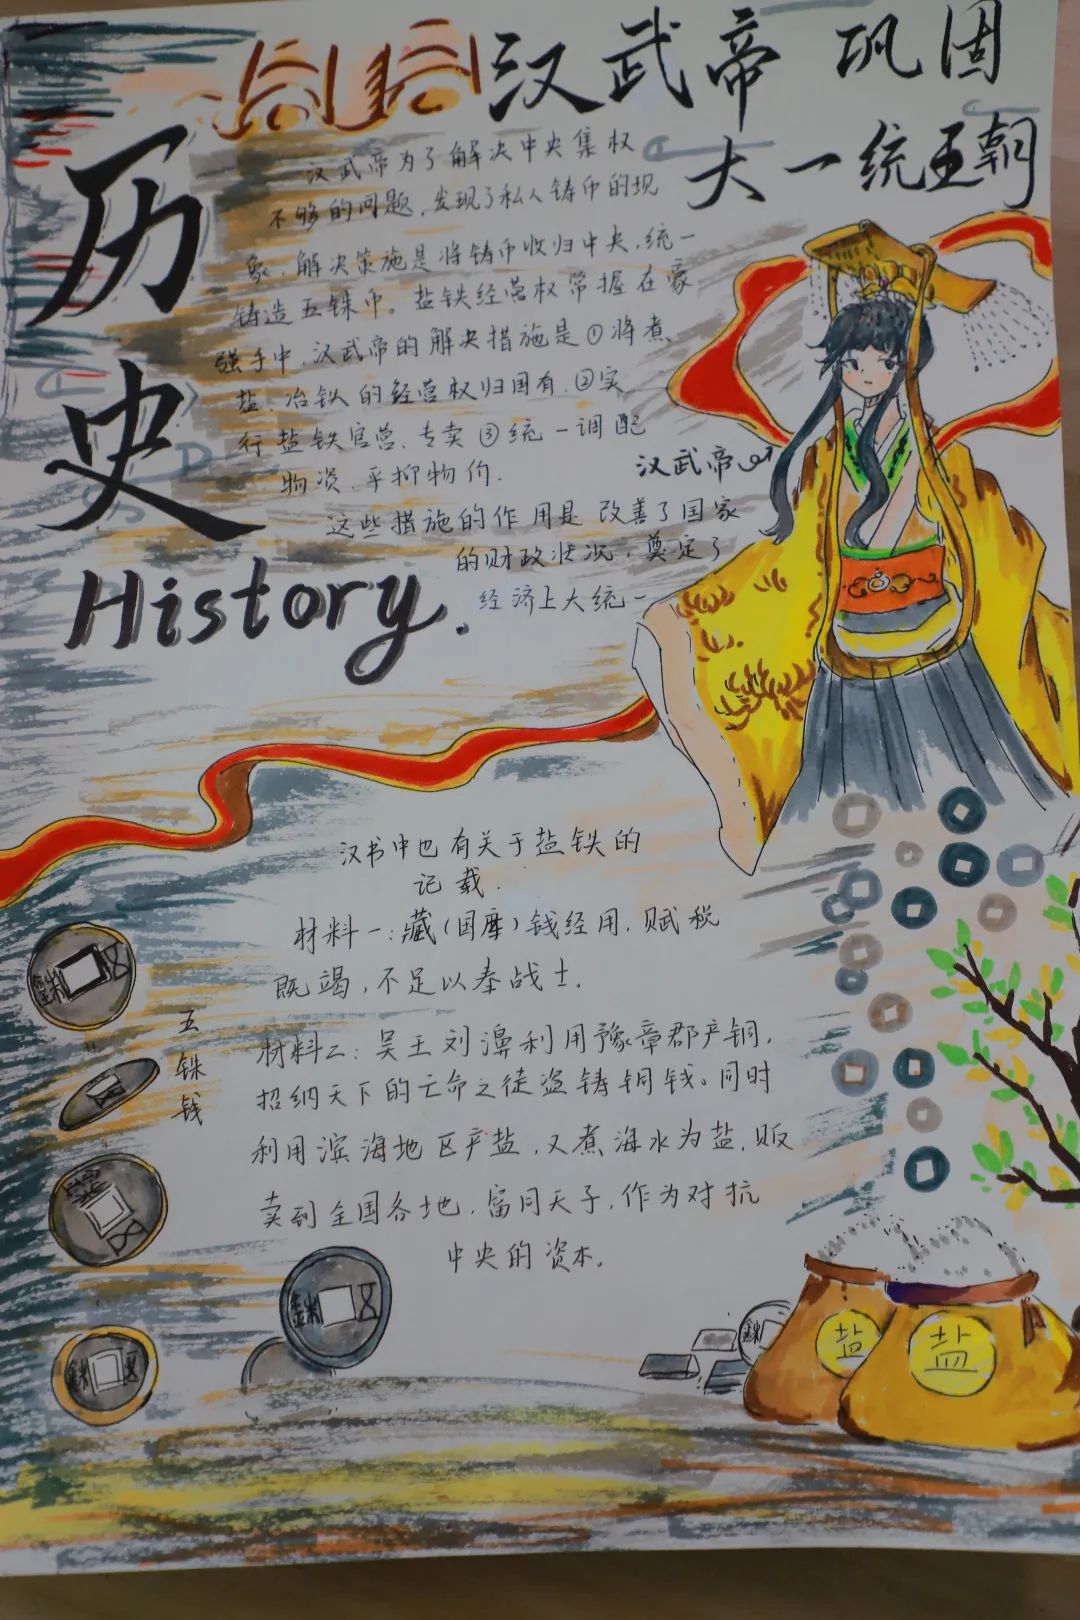 汉武帝 巩固
大一统王朝
历
史
History.
汉武帝为了解决中央集权
不够的问题,发现了私人铸币的现
象,解决策施是将铸币收归中央,统一
铸造五铢币。盐铁经营权常握在豪
强手中,汉武帝的解决措施是①将煮
盐、冶铁的经营权归国有,②实
行盐铁官营、专卖③统一调配
物资,平抑物价.
这些措施的作用是改善了国家
的财政状况,奠定了
经济上大统一
汉武帝
汉书中也有关于盐铁的
记载.
材料一:藏(国库)钱经用,赋税
既竭,不足以奉战士.
材料二:吴王刘濞利用豫章郡产铜,
招纳天下的亡命之徒盗铸铜钱。同时
利用滨海地区产盐,又煮海水为盐,贩
卖到全国各地,富同天子,作为对抗
中央的资本.
五
铢
钱
五銖
五銖
五銖
五銖
盐
盐